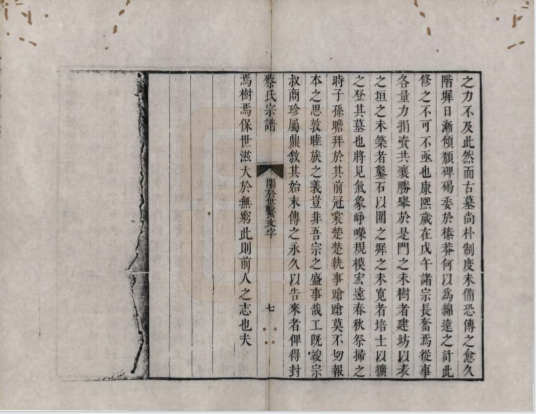 之力不及此然而古墓尚朴制度未備恐傳之愈久
階墀日漸傾頹碑碣委於榛莽何以為綿遠之計此
修之不可不亟也康熙歲在戊午諸宗長奮焉從事
各量力捐資共襄勝舉於是門之未樹者建坊以表
之垣之未築者壘石以圍之墀之未寬者培士以擴
之登其墓也將見氣象崢嶸規模宏遠春秋祭掃之
時子孫瞻拜於其前冠裳楚楚執事蹌蹌莫不切報
本之思敦睦族之義豈非吾宗之盛事哉工既竣宗
叔商珍屬鼎敘其始末傳之永久以告來者俾得封
焉樹焉保世滋大於無窮此則前人之志也夫
蔡氏宗譜
七